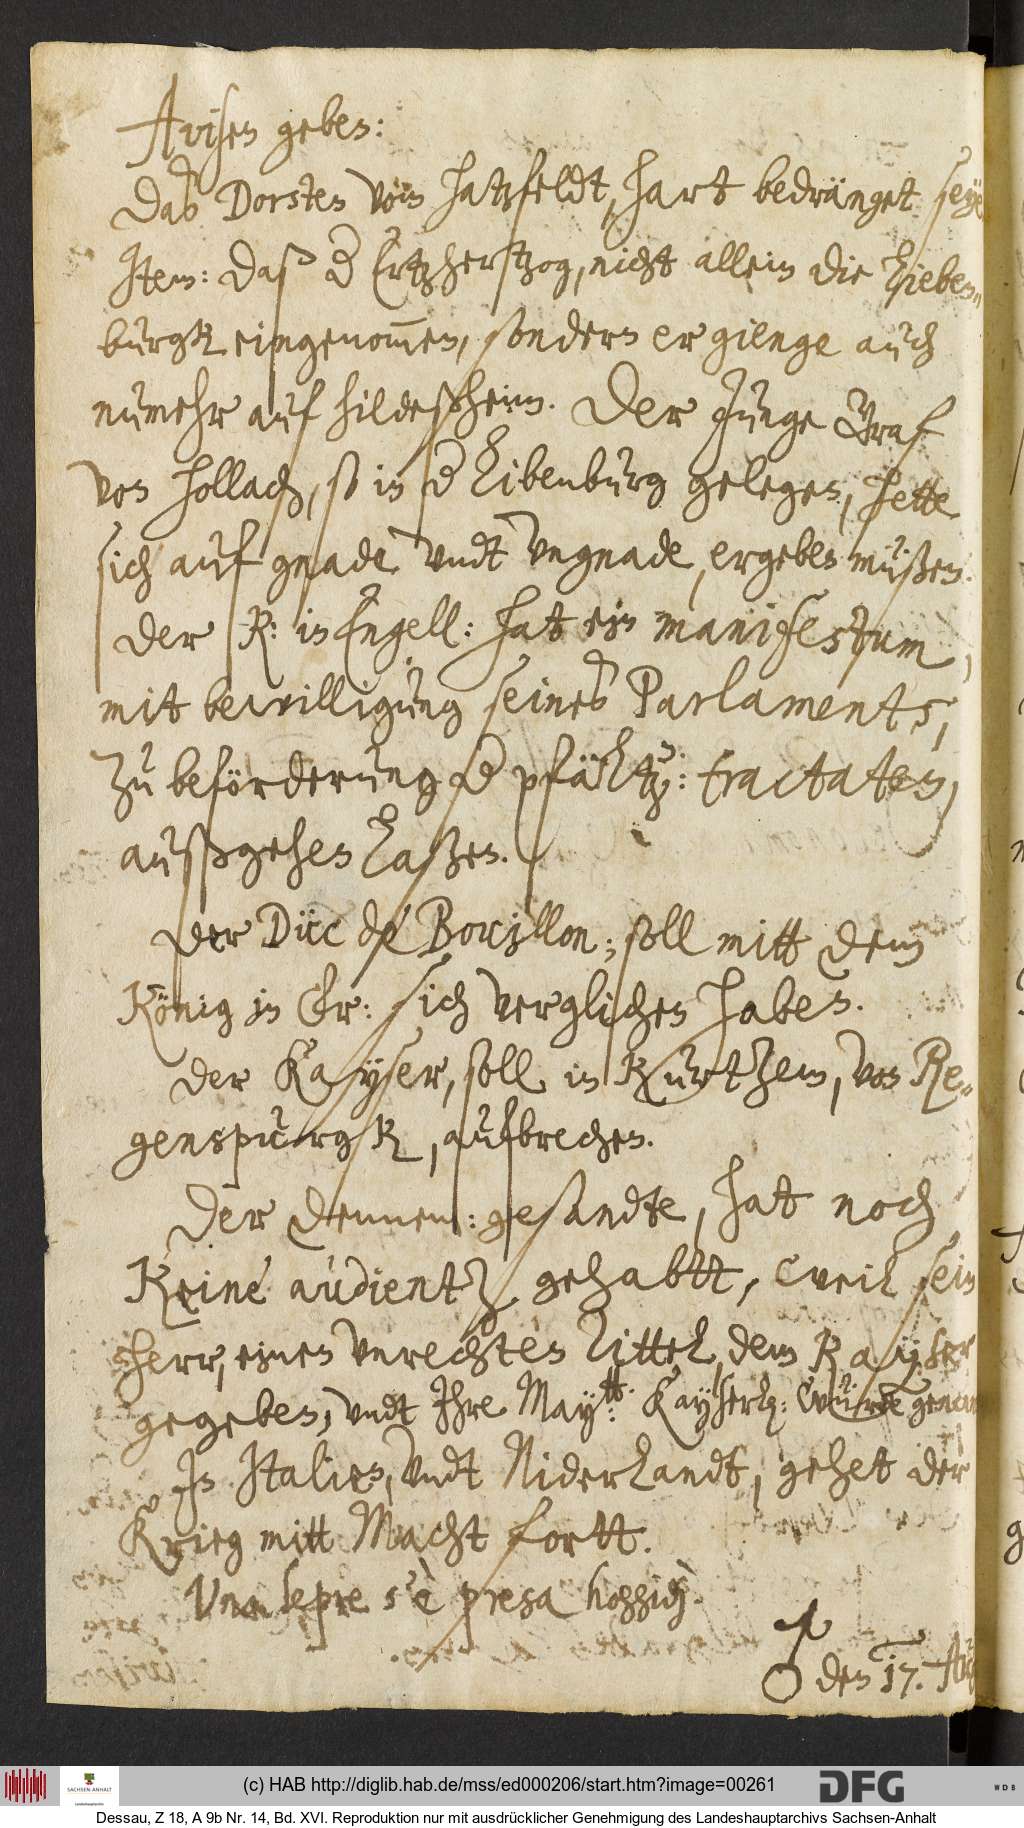 Avisen geben:
Das Dorsten von hatzfeldt, hart bedränget seye
Item: daß d Ertzhertzog, nicht allein die Lieben-
burgk eingenommen, sondern er gienge auch
numehr auf hildeßheim. Der Junge Graf
von hollach, so in d Libenburg gelegen, hette
sich auf gnade vndt vngnade, ergeben müßen.
Der K: in Engell: hat ein manifestum,
mit bewilligung seines Parlaments,
zu beförderung d pfältz: tractaten,
außgehen laßen.
Der Duc de Bouillon; soll mitt dem
König in Fr: sich verglichen haben.
der Kayser, soll in kurtzem, von Re-
genspurgk, aufbrechen.
Der Dennem: gesandte, hat noch
keine audientz gehabtt, weil sein
herr, einen vnrechten Tittel, dem Kayser
gegeben, vndt Ihre Maytt: Kayserl: würde
In Italien, vndt Niderlandt, gehet der
Krieg mitt Macht fortt.
Una lepre s'è presa hoggidì.
♂ den 17. Au
(c) HAB http://diglib.hab.de/mss/ed000206/start.htm?image=00261
SACHSEN-ANHALT
DFG
WDB
Dessau, Z 18, A 9b Nr. 14, Bd. XVI. Reproduktion nur mit ausdrücklicher Genehmigung des Landeshauptarchivs Sachsen-Anhalt